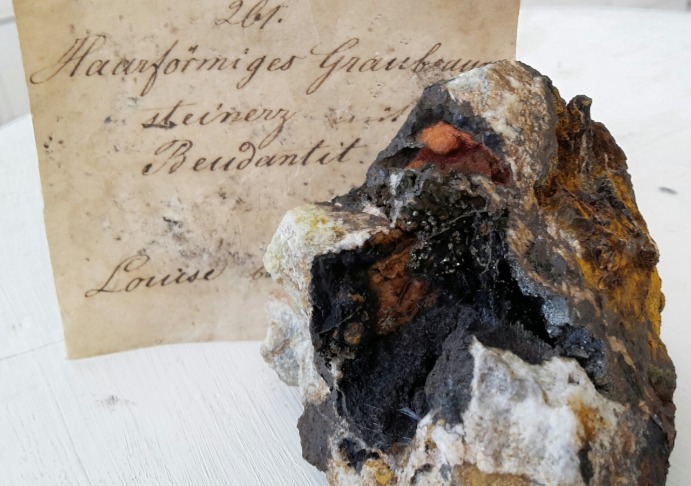 261.
Haarförmiges Graubraun
steinerz mit
Beudantit.
Louise